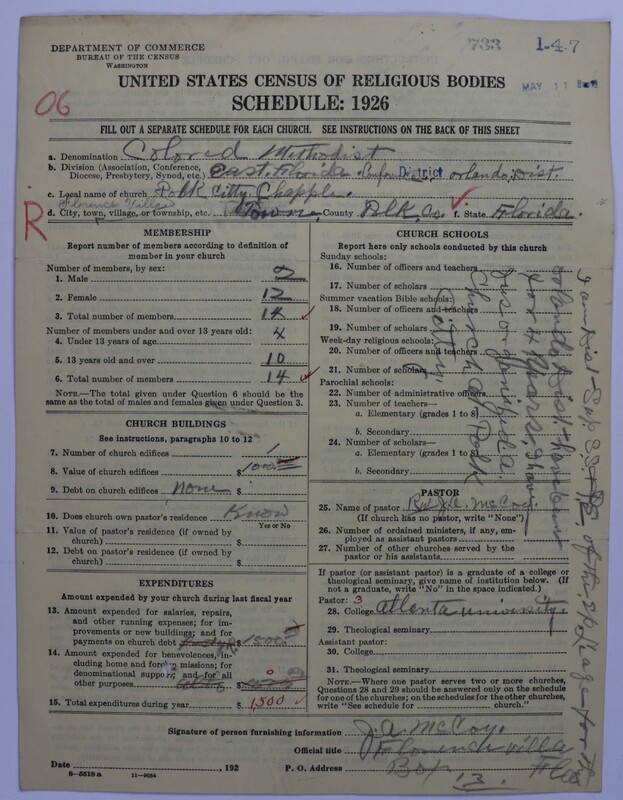 DEPARTMENT OF COMMERCE
BUREAU OF THE CENSUS
WASHINGTON
733
1-4-7
MAY 11
UNITED STATES CENSUS OF RELIGIOUS BODIES
SCHEDULE: 1926
06
FILL OUT A SEPARATE SCHEDULE FOR EACH CHURCH. SEE INSTRUCTIONS ON THE BACK OF THIS SHEET
a. Denomination Colored Methodist
b. Division (Association, Conference, Diocese, Presbytery, Synod, etc.) East Florida Confer District Orlando, Dist.
c. Local name of church Polk Citty Chapple.
Florence Villa
R
d. City, town, village, or township, etc. Town County Polk Co. f. State Florida.
MEMBERSHIP
Report number of members according to definition of
member in your church
Number of members, by sex:
1. Male 2
2. Female 12
3. Total number of members 14
Number of members under and over 13 years old:
4. Under 13 years of age 4
5. 13 years old and over 10
6. Total number of members 14
NOTE.—The total given under Question 6 should be the
same as the total of males and females given under Question 3.
CHURCH BUILDINGS
See instructions, paragraphs 10 to 12
7. Number of church edifices 1
8. Value of church edifices $1000
9. Debt on church edifices none $
10. Does church own pastor's residence Know
Yes or No
11. Value of pastor's residence (if owned by
church) $
12. Debt on pastor's residence (if owned by
church) $
EXPENDITURES
Amount expended by your church during last fiscal year
13. Amount expended for salaries, repairs,
and other running expenses; for im-
provements or new buildings; and for
payments on church debt $1500
14. Amount expended for benevolences, in-
cluding home and foreign missions; for
denominational support; and for all
other purposes $
15. Total expenditures during year $ 1,500
CHURCH SCHOOLS
Report here only schools conducted by this church
Sunday schools:
16. Number of officers and teachers
17. Number of scholars
Summer vacation Bible schools:
18. Number of officers and teachers
19. Number of scholars
Week-day religious schools:
20. Number of officers and teachers
21. Number of scholars
Parochial schools:
22. Number of administrative officers
23. Number of teachers—
a. Elementary (grades 1 to 8)
b. Secondary
24. Number of scholars—
a. Elementary (grades 1 to 8)
b. Secondary
Church at Polk
Citty
PASTOR
25. Name of pastor Rev J.A. McCoy.
(If church has no pastor, write "None")
26. Number of ordained ministers, if any, em-
ployed as assistant pastors
27. Number of other churches served by the
pastor or his assistants
If pastor (or assistant pastor) is a graduate of a college or
theological seminary, give name of institution below. (If
not a graduate, write "No" in the space indicated.)
Pastor: 3
28. College Atlenta university.
29. Theological seminary
Assistant pastor:
30. College
31. Theological seminary
NOTE.—Where one pastor serves two or more churches,
Questions 28 and 29 should be answered only on the schedule
for one of the churches; on the schedules for the other churches,
write "See schedule for church."
Signature of person furnishing information J.A. McCoy.
Official title Florence villa
Date , 192 P. O. Address Box 13. Fla
8—5518 a 11—9084